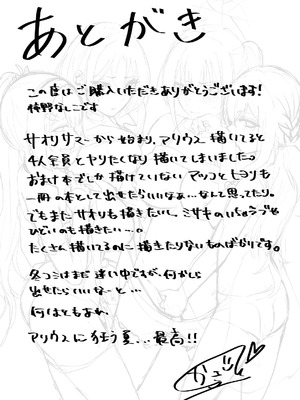 あとがき
この度はご購入いただきありがとうございます!
なしこです
サオリサマーから始まり、アリウス描いてると
4人全員とヤりたくなり描いてしまいました。
おまけ本でしか描けていないアツコとヒヨリも
一冊の本として出せたらいいなぁ...なんて思ってたり。
でもまたサオリも描きたいし、ミサキのいちゃラブや
ひどいのも描きたい...。
たくさん描いてるのに描きたりないものばかりです。
冬コミはまだ迷い中ですが、何かしら
出せたらいいなーと...
何はともあれ
アリウスに狂う夏...最高!!